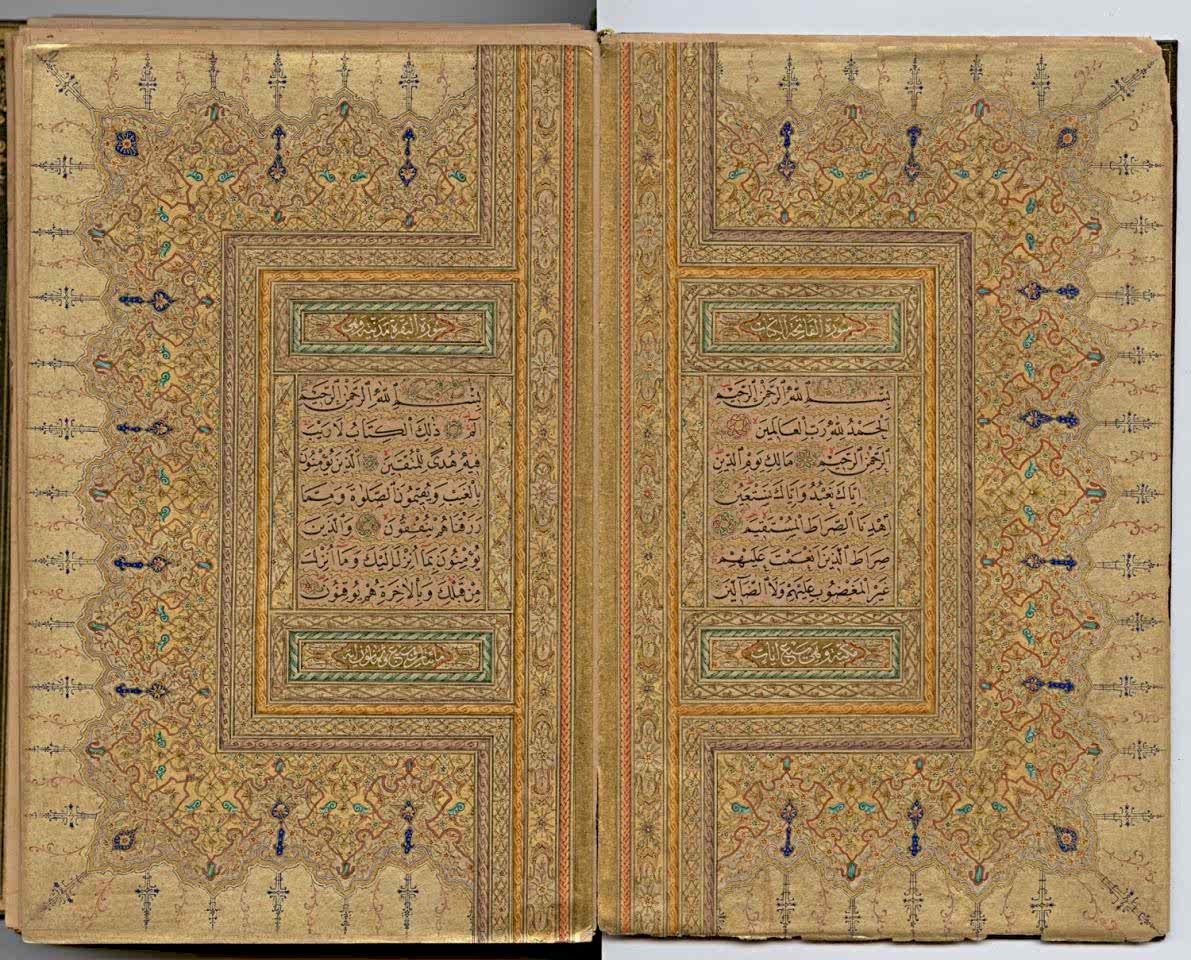 سورة الفاتحة الكتاب
بِسْمِ ٱللَّهِ ٱلرَّحْمٰنِ ٱلرَّحِيمِ
اَلْحَمْدُ لِلَّهِ رَبِّ الْعَالَمِينَ
الرَّحْمٰنِ الرَّحِيمِ مَالِكِ يَوْمِ الدِّينِ
اِيَّاكَ نَعْبُدُ وَاِيَّاكَ نَسْتَعِينُ
اِهْدِنَا الصِّرَاطَ الْمُسْتَقِيمَ
صِرَاطَ الَّذِينَ اَنْعَمْتَ عَلَيْهِمْ
غَيْرِ الْمَغْضُوبِ عَلَيْهِمْ وَلَا الضَّآلِّينَ
سبع ايات
سورة البقرة مدنية وهي
بِسْمِ ٱللَّهِ ٱلرَّحْمٰنِ ٱلرَّحِيمِ
الٓمٓ ذٰلِكَ الْكِتَابُ لَا رَيْبَ
فِيهِ هُدًى لِلْمُتَّقِينَ الَّذِينَ يُؤْمِنُونَ
بِالْغَيْبِ وَيُقِيمُونَ الصَّلٰوةَ وَمِمَّا
رَزَقْنَاهُمْ يُنْفِقُونَ وَالَّذِينَ
يُؤْمِنُونَ بِمَا اُنْزِلَ اِلَيْكَ وَمَا اُنْزِلَ
مِنْ قَبْلِكَ وَبِالْاٰخِرَةِ هُمْ يُوقِنُونَ